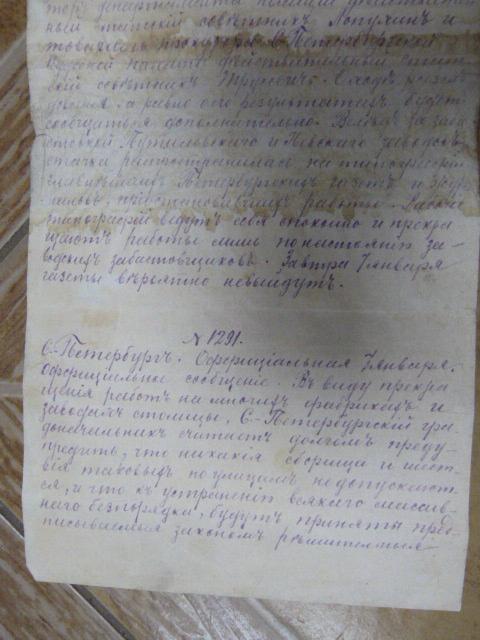 торъ департамента полиціи дѣйствитель
ный статскій совѣтникъ Лопухинъ и
товарищъ прокурора С-Петербургской
Судебной палаты дѣйствительный стат
скій совѣтникъ Трусевичъ. О ходѣ разслѣ
дованія, а равно о его результатахъ будетъ
сообщаться дополнительно. Вслѣдъ за заба
стовкой Путиловскаго и Невскаго заводовъ
стачка распространилась на типографіи
главнѣйшихъ Петербургскихъ газетъ и жур
наловъ, пріостановившихъ работы. Рабочіе
типографій ведутъ себя спокойно и прекра
щаютъ работы лишь по настоянію за-
водскихъ забастовщиковъ. Завтра 7 января
газеты вѣроятно невыйдутъ.
№ 1291.
С-Петербургъ. Оффиціальная 7 января.
Оффиціальное сообщеніе. Въ виду прекра
щенія работъ на многихъ фабрикахъ и
заводахъ столицы, С-Петербургскій гра
доначальникъ считаетъ долгомъ преду
предить, что никакія сборища и шест
вія таковыхъ по улицамъ не допускают
ся, и что къ устраненію всякаго массив-
наго безпорядка, будутъ приняты пред
писываемыя закономъ рѣшительныя